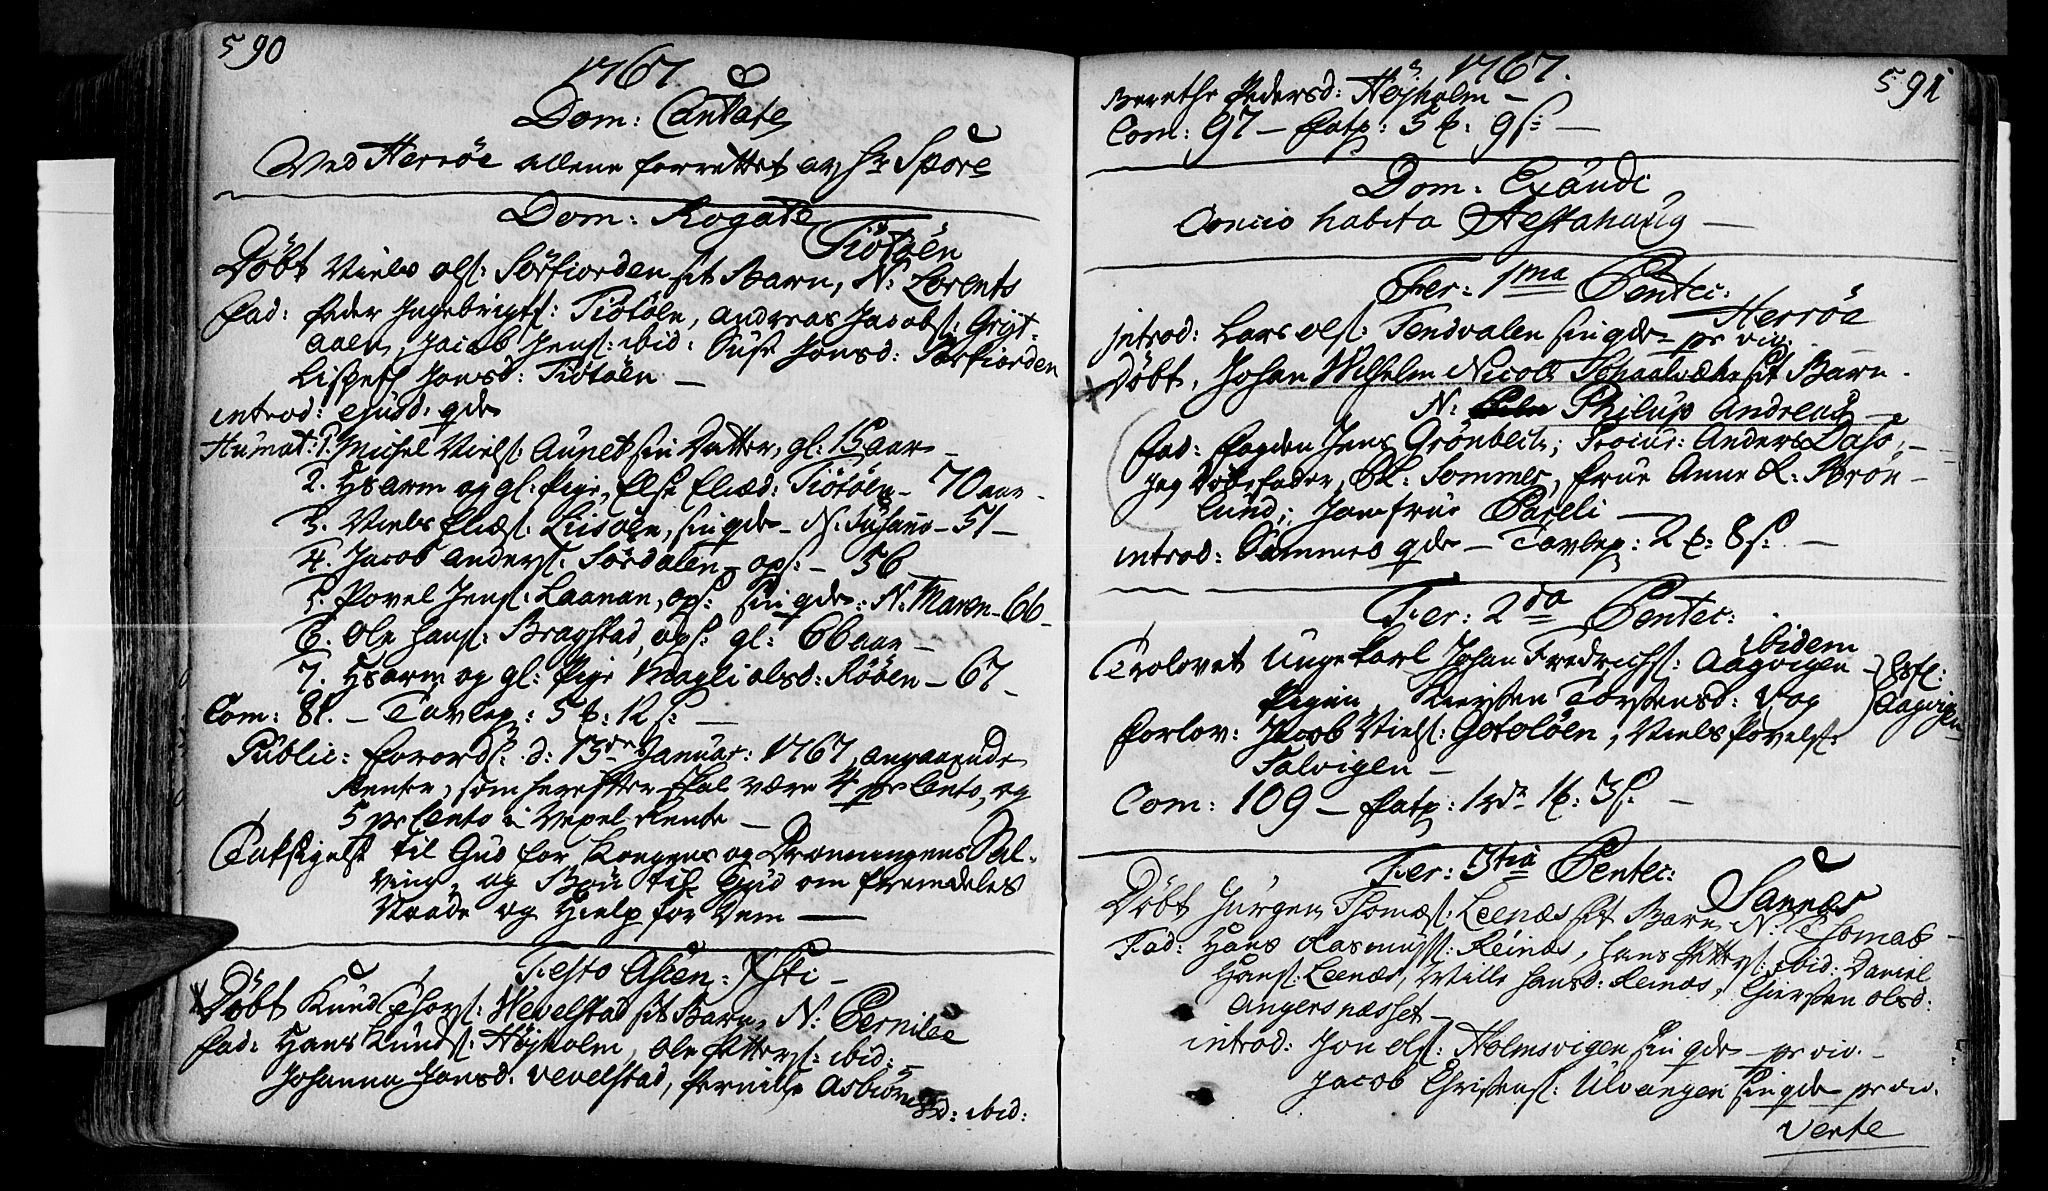 590
1767.
Dom: Cantate
Ved Herröe allene forrettet av Hr Spöre
Dom: Rogate
Tiötöen
Döbt Niels ols: Sörfiorden sit Barn, N: Lorents
Fad: Peder Ingebrigts: Tiötöen, Andreas Jacobs: Gryt-
aaen, Jacob Jens: ibid: Susæ Jonsd: Sörfiorden
Lisbeth Jonsd: Tiötöen —
introd: ejusd: qde
Humat: 1. Michel Niels: Aunet sin Datter, gl: 15 aar —
2. Hsarm og gl: Pige, Else Eliæd: Tiötöen — 70 aar —
3. Niels Eliæs: öen, sin qde — N: Susanna — 51 —
4. Jacob Anders: Sördalen — ops: — 56
5. Povel Jens: Laanan, ops: sin qde: N: Maren — 66 —
6. Ole Hans: Bragstad, ops: gl: 66 aar —
7. Hsarm og gl: Pige Magli olsd: Rööen — 67 —
Com: 81. — Tavlep: 5 : 12 s: —
Public: Forord: d: 13de Januar: 1767, angaaende
Rente, som herefter skal være 4 pr Cento, og
5 pr Cento i Vexel Rente —
Taksigelse til Gud for Kongens og Dronningens Sal-
ving, og Bön til Gud om fremdeles
Naade og Hielp for Dem —
Festo Ascen: Xsti —
Döbt Knud Thors: Wevelstad sit Barn, N: Pernille
Fad: Hans Knuds: Höjholm, Ole Petters: ibid:
Johanna Jonsd: Vevelstad, Pernille Asbiörnsd: ibid:
591
1767.
Berethe Pedersd: Höjholm —
Com: 97 — Patp: 5 : 9 s: —
Dom: Exaudi
Concio habita Alstahoug —
Fer: 1ma Pentec:
Herröe
introd: Lars ols: Tendvalen sin qde — pr viv.
Döbt, Johan Wilhelm Nicoll sit Barn
N: Philup Andreas —
Fad: Fogden Jens Grönbech; Procur: Anders Dasö; —
Jeg Döbefader, Sommer, Frue Anne R: Brön-
lund; Jomfrue Pareli —
introd: Sammes qde — Tavlep: 2 : 8 s: —
Fer: 2da Pentec:
ibidem
Trolovet Ungekarl Johan Fredrichs: Aagvigen —
Pigen, Kiersten Torstensd: Aagvigen
Forlov: Jacob Niels: Gotolöen, Niels Povels:
Salvigen —
Com: 109 — Patp: 1 rdr 1 : 3 s: —
Fer: 3tia Pentec:
Sannæs
Döbt Jürgen Thomæs: Leenæs sit Barn, N: Thomas —
Fad: Hans Rasmuss: Reinæs, Hans Petters: ibid: Daniel
Hans: Leenæs, Mille Hansd: Reinæs, Chirsten olsd:
Angersnæsset —
introd: Jon ols: Holmsvigen sin qde — pr viv. —
Jacob Christens: Ulvangen sin qde pr viv.
Verte